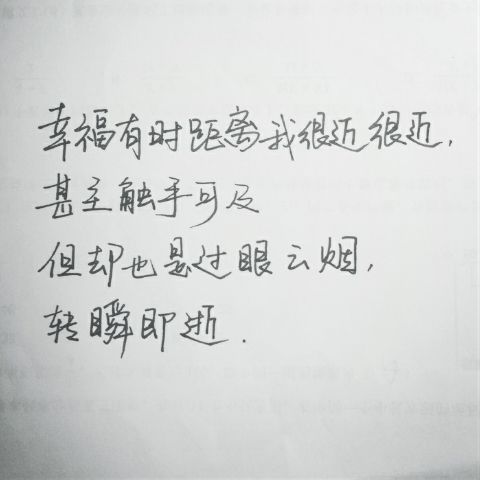 幸福有时距离我很近很近,
甚至触手可及
但却也是过眼云烟,
转瞬即逝.